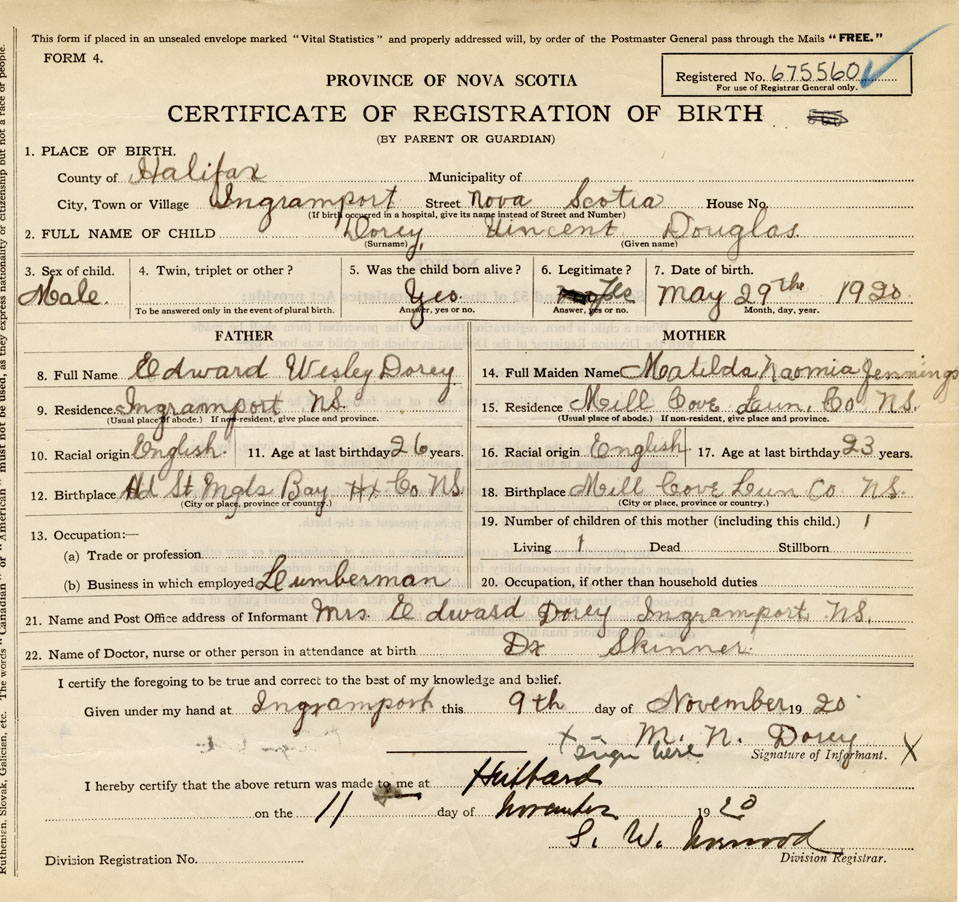 This form if placed in an unsealed envelope marked "Vital Statistics" and properly addressed will, by order of the Postmaster General pass through the Mails "FREE."
FORM 4.
Registered No. 675560
For use of Registrar General only.
PROVINCE OF NOVA SCOTIA
CERTIFICATE OF REGISTRATION OF BIRTH
(BY PARENT OR GUARDIAN)
1. PLACE OF BIRTH.
County of Halifax Municipality of
City, Town or Village Ingramport Street Nova Scotia House No.
(If birth occurred in a hospital, give its name instead of Street and Number)
2. FULL NAME OF CHILD Dorey, Vincent Douglas
(Surname) (Given name)
3. Sex of child. Male.
4. Twin, triplet or other?
To be answered only in the event of plural birth.
5. Was the child born alive? Yes.
Answer, yes or no.
6. Legitimate? Yes
Answer, yes or no.
7. Date of birth. May 29th 1920
Month, day, year.
FATHER
8. Full Name Edward Wesley Dorey
9. Residence Ingramport NS.
(Usual place of abode.) If non-resident, give place and province.
10. Racial origin English. 11. Age at last birthday 26 years.
12. Birthplace Hd St Mgts Bay Hx Co NS.
(City or place, province or country.)
13. Occupation:—
(a) Trade or profession
(b) Business in which employed Lumberman
MOTHER
14. Full Maiden Name Matilda Naomia Jennings
15. Residence Mill Cove Lun. Co NS.
(Usual place of abode.) If non-resident, give place and province.
16. Racial origin English 17. Age at last birthday 23 years.
18. Birthplace Mill Cove Lun Co NS.
(City or place, province or country.)
19. Number of children of this mother (including this child.) 1
Living 1 Dead Stillborn
20. Occupation, if other than household duties
21. Name and Post Office address of Informant Mrs. Edward Dorey Ingramport NS.
22. Name of Doctor, nurse or other person in attendance at birth Dr Skinner.
I certify the foregoing to be true and correct to the best of my knowledge and belief.
Given under my hand at Ingramport this 9th day of November 1920
X sign here M. N. Dorey X
Signature of Informant.
I hereby certify that the above return was made to me at Hubbard
on the 11 day of November 1920
Division Registration No.
Division Registrar.
Ruthenian, Slovak, Galician, etc. The words "Canadian" or "American" must not be used, as they express nationality or citizenship but not a race or people.